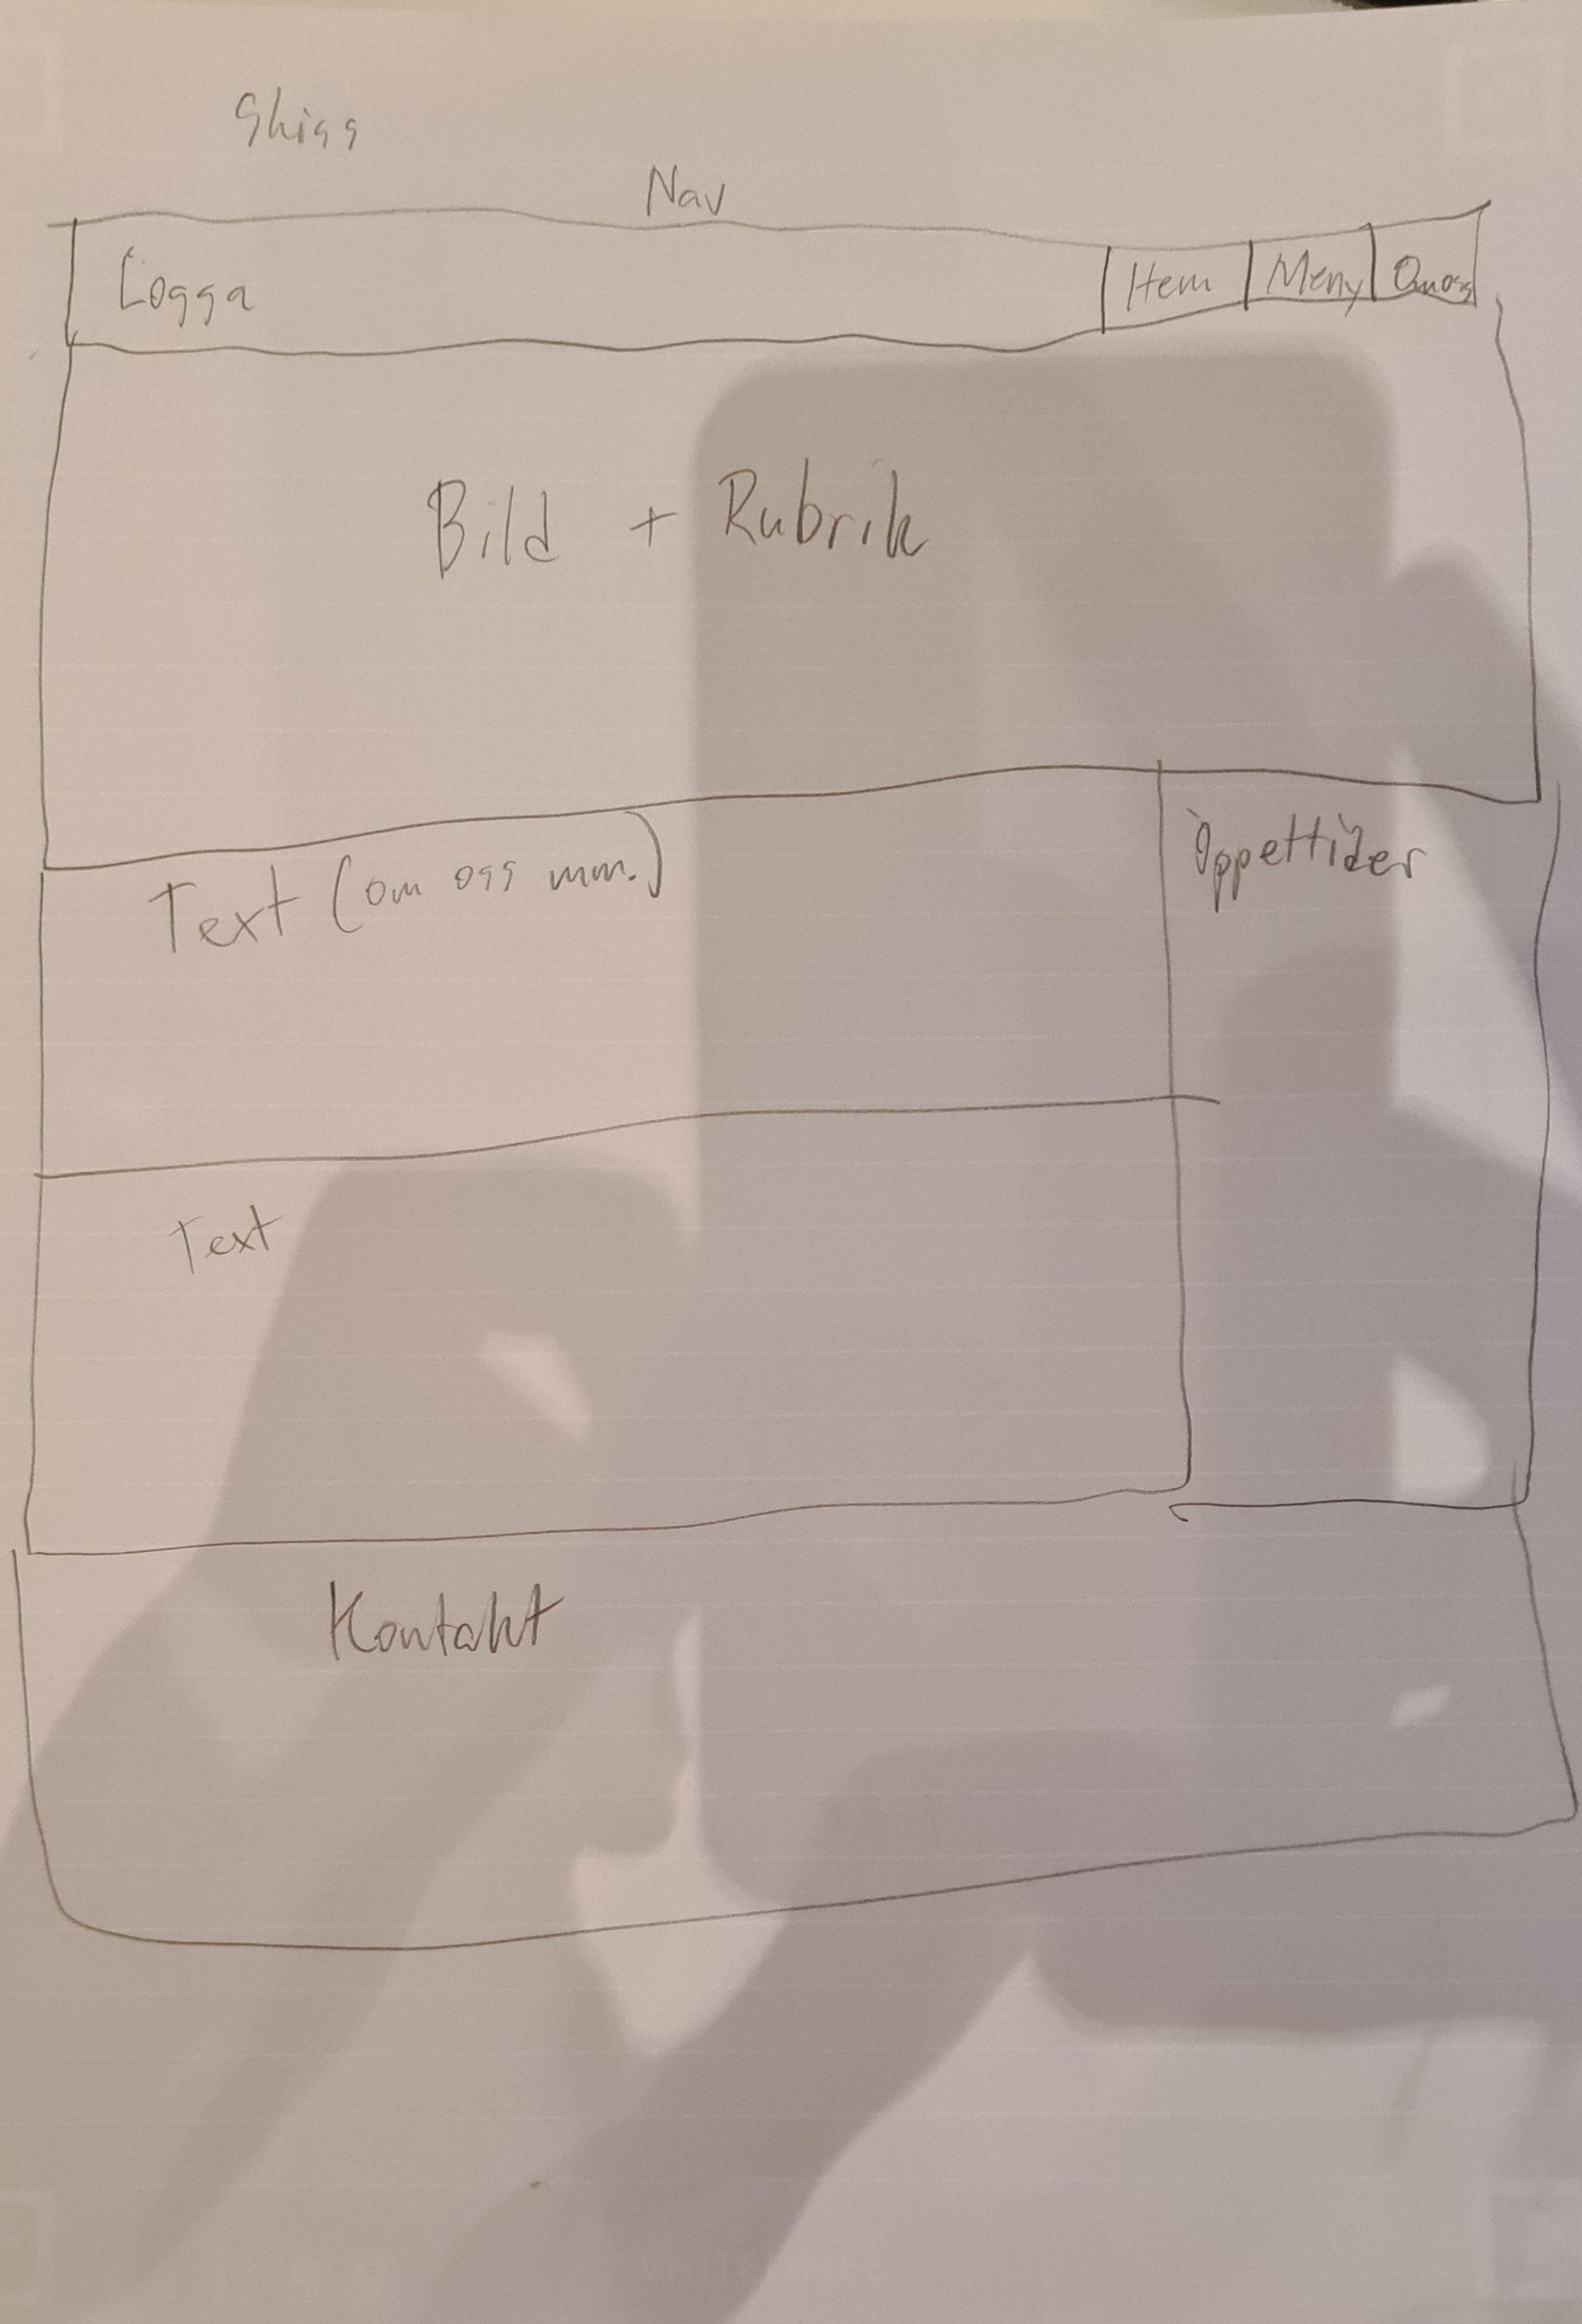 Skiss
Nav
Logga
Hem
Meny
Om oss
Bild + Rubrik
Text (om oss mm.)
Öppettider
Text
Kontakt